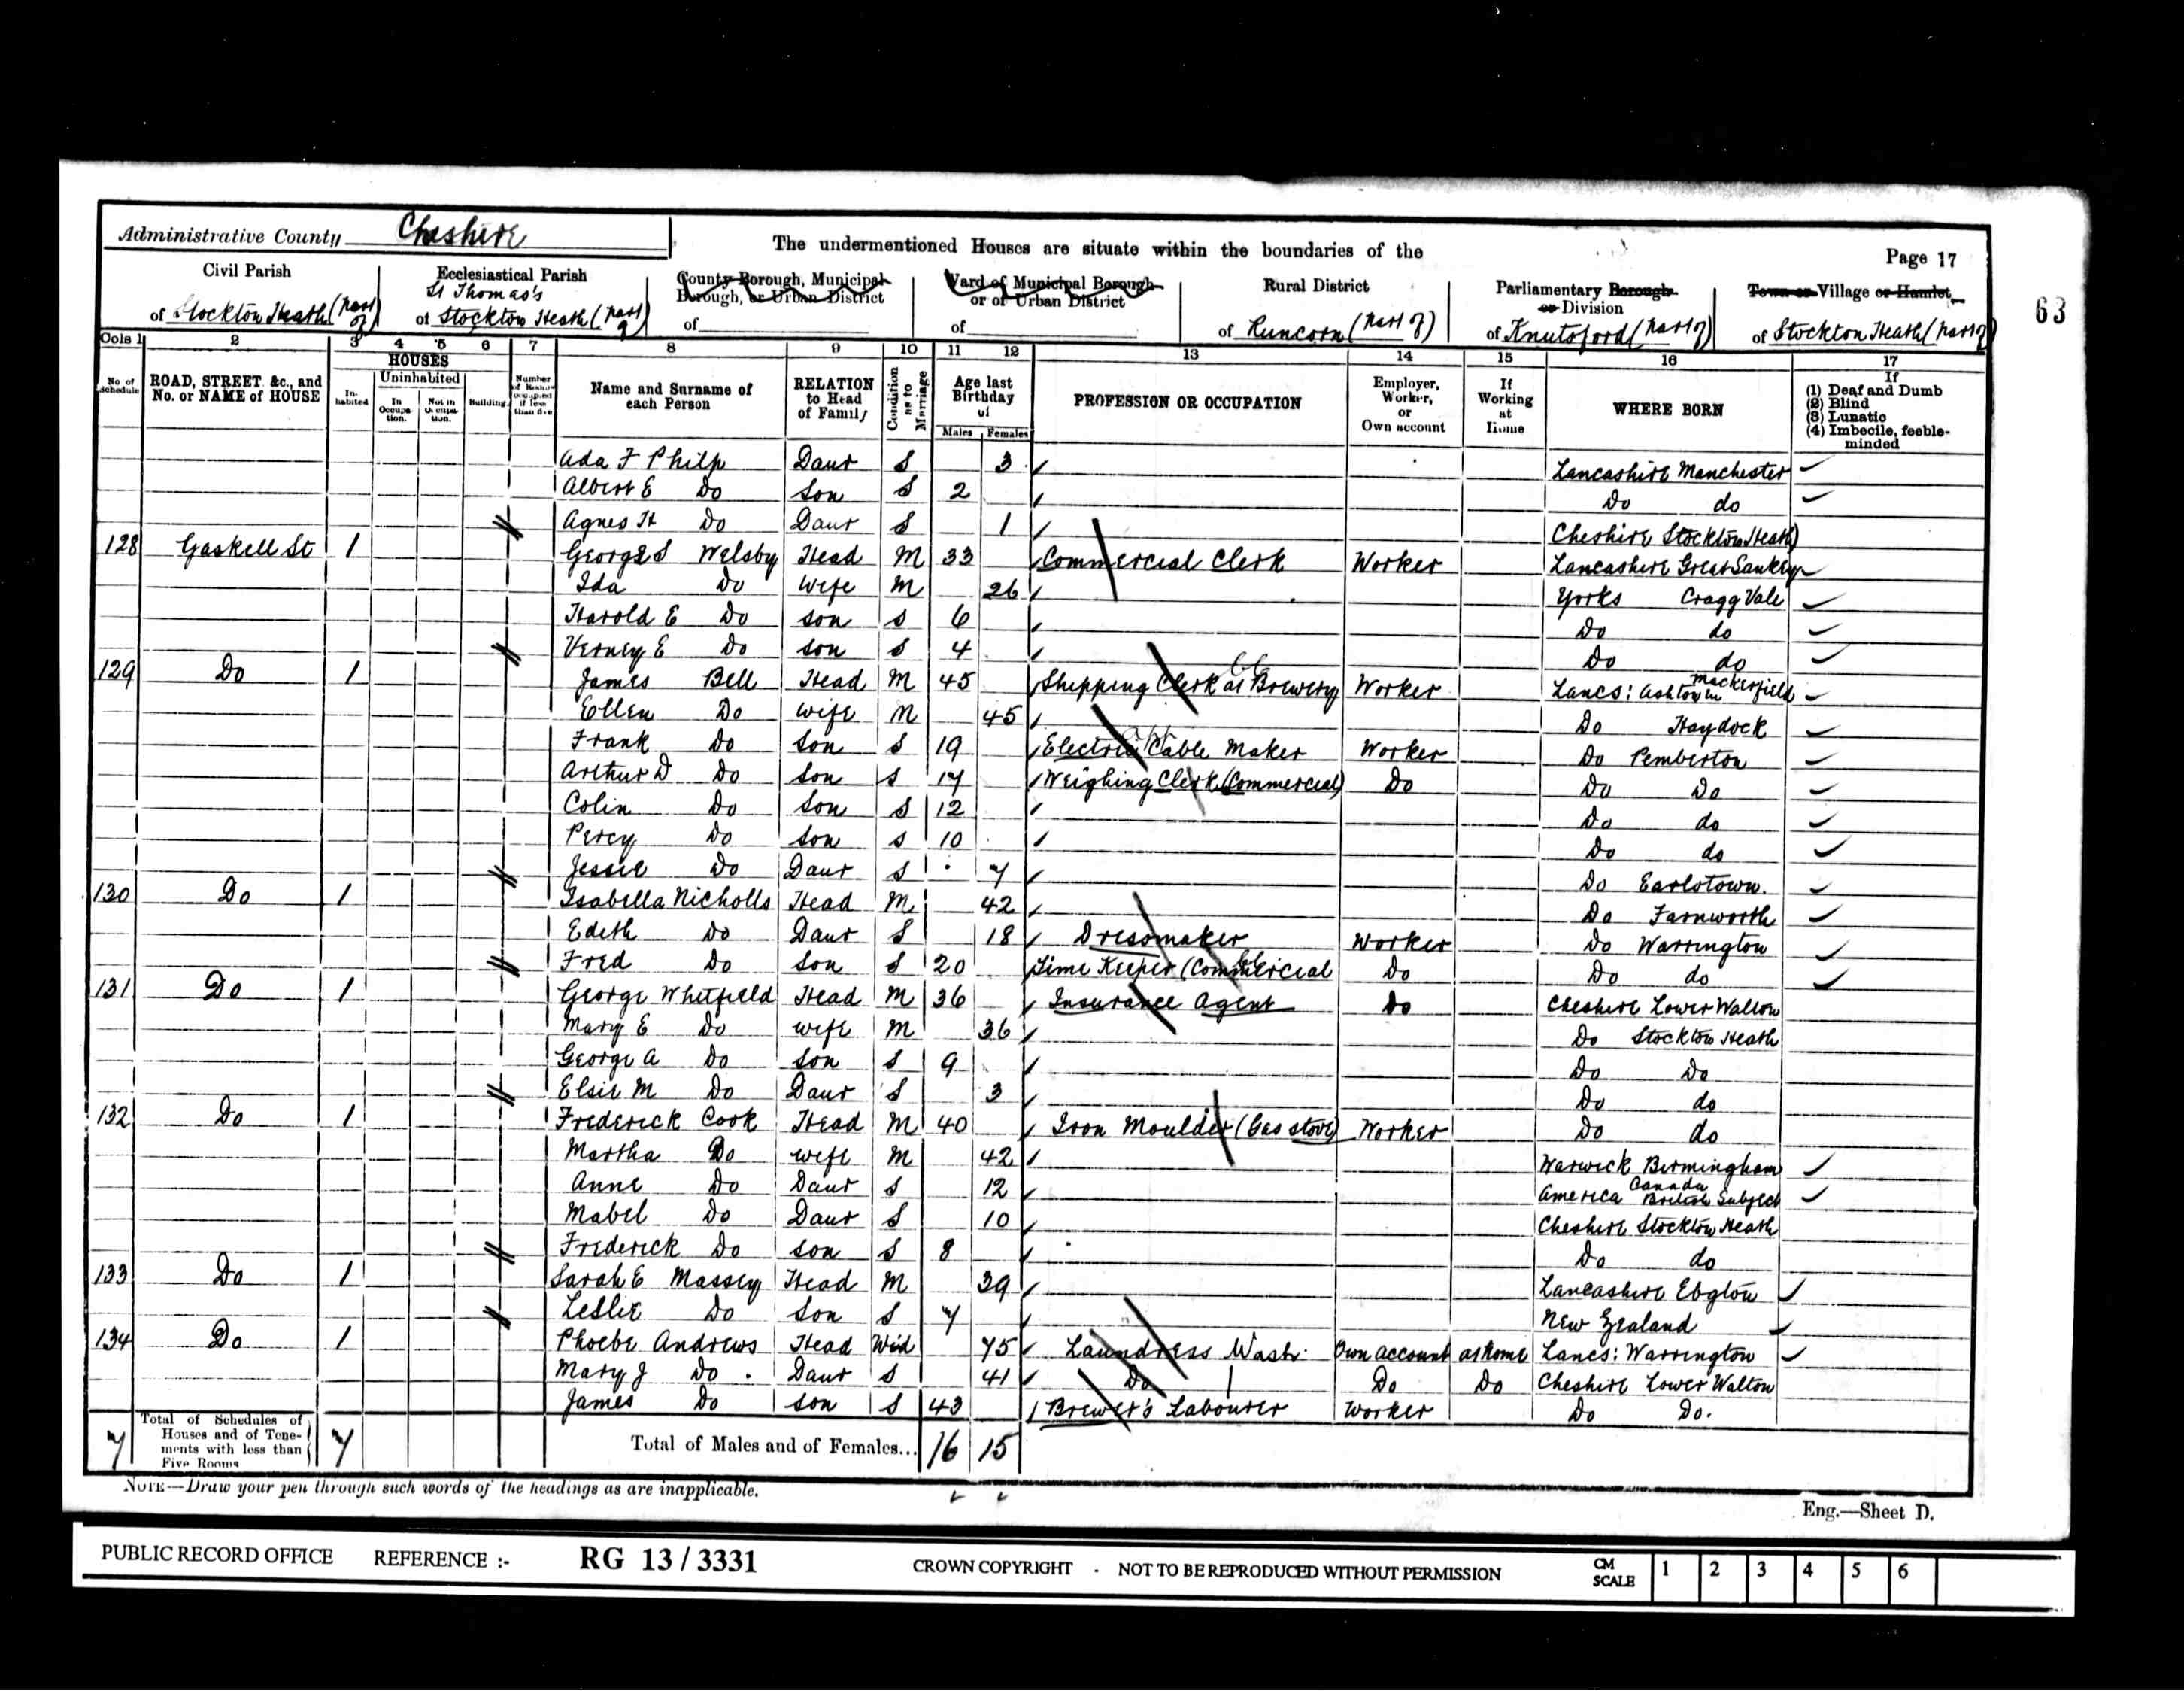 Administrative County Cheshire
The undermentioned Houses are situate within the boundaries of the
Page 17
63
Civil Parish of Stockton Heath (part of)
Ecclesiastical Parish of St Thomas's Stockton Heath (part of)
County Borough, Municipal Borough, or Urban District of
Ward of Municipal Borough or of Urban District of
Rural District of Runcorn (part of)
Parliamentary Borough or Division of Knutsford (part of)
Town or Village or Hamlet of Stockton Heath (part of)
Cols 1 2 3 4 5 6 7 8 9 10 11 12 13 14 15 16 17
No. of Schedule
ROAD, STREET, &c., and No. or NAME of HOUSE
HOUSES
In-habited
Uninhabited
In Occupa-tion.
Not in Occupa-tion.
Building
Number of Rooms occupied if less than five
Name and Surname of each Person
RELATION to Head of Family
Condition as to Marriage
Age last Birthday of
Males Females
PROFESSION OR OCCUPATION
Employer, Worker, or Own account
If Working at Home
WHERE BORN
If (1) Deaf and Dumb (2) Blind (3) Lunatic (4) Imbecile, feeble-minded
Ada F Philp Daur S 3 Lancashire Manchester
Albert E Do Son S 2 Do do
Agnes H Do Daur S 1 Cheshire Stockton Heath
128 Gaskell St 1 George S Welsby Head M 33 Commercial Clerk Worker Lancashire Great Sankey
Ida Do Wife M 26 Yorks Cragg Vale
Harold E Do Son S 6 Do do
Verney E Do Son S 4 Do do
129 Do 1 James Bell Head M 45 Shipping Clerk at Brewery Worker Lancs: Ashton in Mackerfield
Ellen Do Wife M 45 Do Haydock
Frank Do Son S 19 Electric Cable Maker Worker Do Pemberton
Arthur D Do Son S 17 Weighing Clerk (Commercial) Do Do Do
Colin Do Son S 12 Do do
Percy Do Son S 10 Do do
Jessie Do Daur S 7 Do Earlstown.
130 Do 1 Isabella Nicholls Head M 42 Do Farnworth
Edith Do Daur S 18 Dressmaker Worker Do Warrington
Fred Do Son S 20 Time Keeper (Commercial Do Do do
131 Do 1 George Whitfield Head M 36 Insurance Agent Do Cheshire Lower Walton
Mary E Do Wife M 36 Do Stockton Heath
George A Do Son S 9 Do Do
Elsie M Do Daur S 3 Do do
132 Do 1 Frederick Cook Head M 40 Iron Moulder (Gas stove) Worker Do do
Martha Do Wife M 42 Warwick Birmingham
Anne Do Daur S 12 America Canada British Subject
Mabel Do Daur S 10 Cheshire Stockton Heath
Frederick Do Son S 8 Do do
133 Do 1 Sarah E Massey Head M 39 Lancashire
Leslie Do Son S 7 New Zealand
134 Do 1 Phoebe Andrews Head Wid 75 Laundress Wash. Own account at home Lancs: Warrington
Mary J Do Daur S 41 Do Do Do Cheshire Lower Walton
James Do Son S 43 Brewer's Labourer Worker Do Do.
7 Total of Schedules of Houses and of Tene-ments with less than Five Rooms 7 Total of Males and of Females... 16 15
NOTE—Draw your pen through such words of the headings as are inapplicable.
Eng.—Sheet D.
PUBLIC RECORD OFFICE REFERENCE :- RG 13 / 3331 CROWN COPYRIGHT - NOT TO BE REPRODUCED WITHOUT PERMISSION CM SCALE 1 2 3 4 5 6